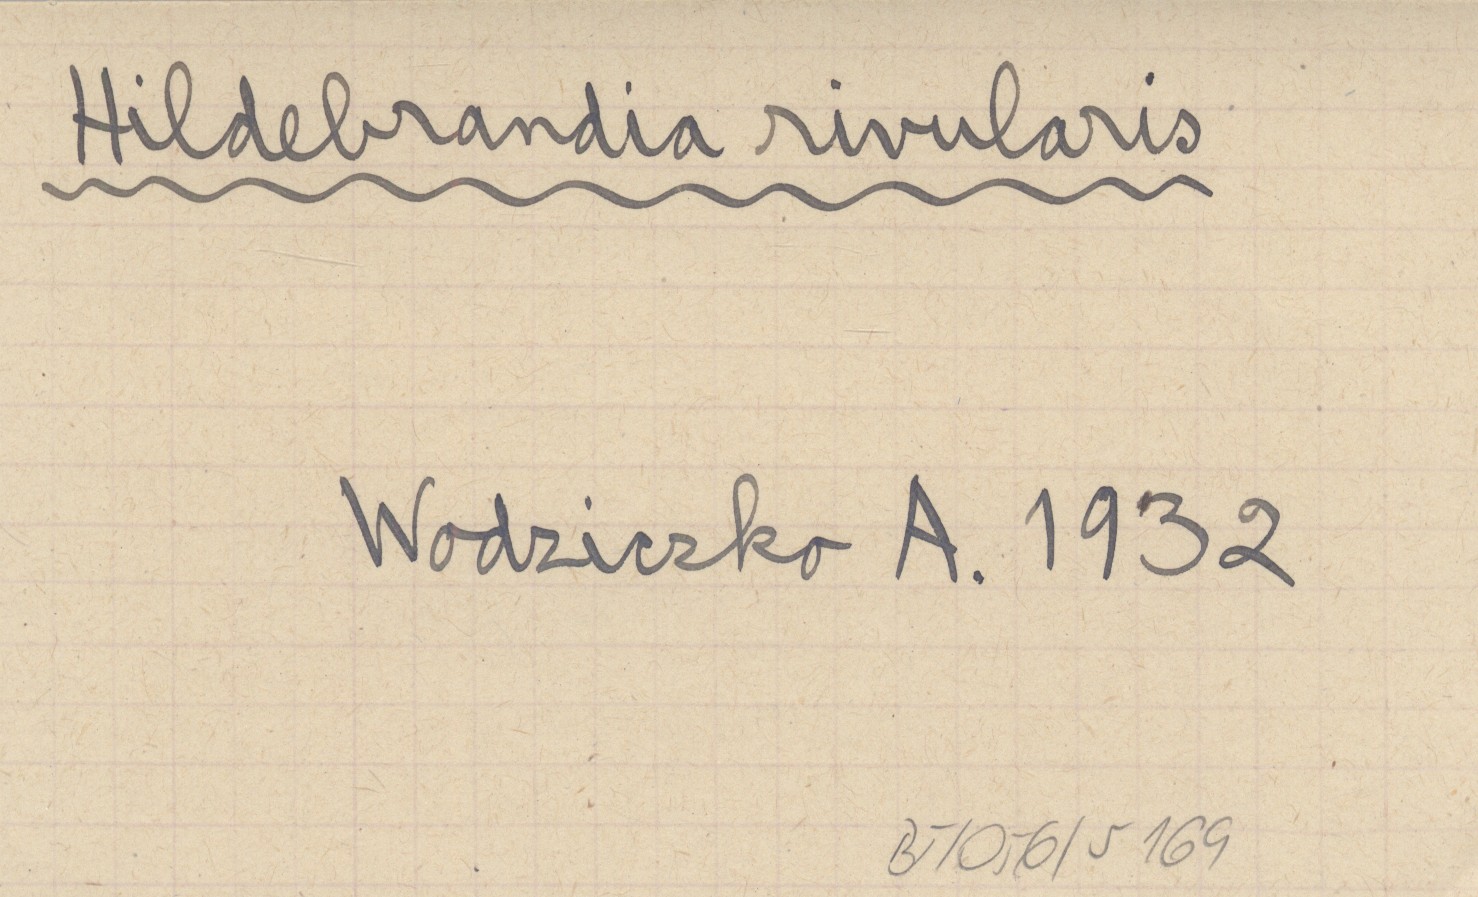 Hildebrandia rivularis
Wodziczko A. 1932
169